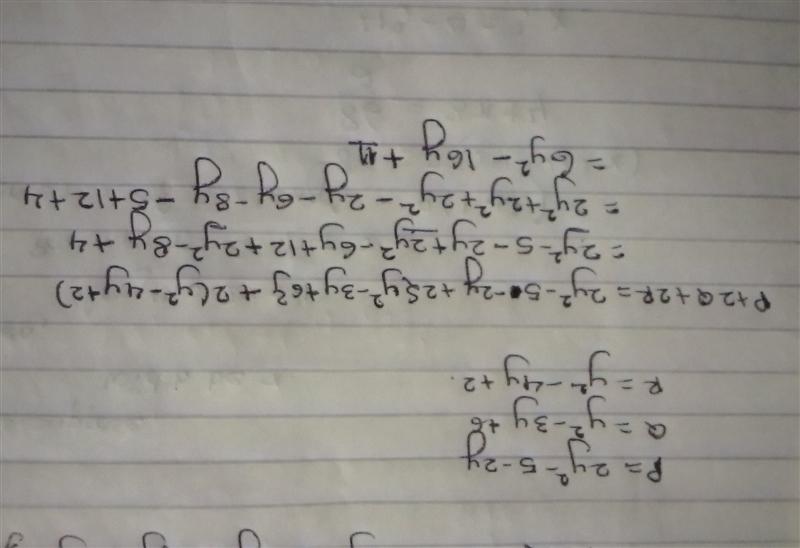 P = 2y² - 5 - 2y
Q = y² - 3y + 6
R = y² - 4y + 2.
P+2Q+2R = 2y² - 5 - 2y + 2{y² - 3y + 6} + 2(y² - 4y + 2)
= 2y² - 5 - 2y + 2y² - 6y + 12 + 2y² - 8y + 4
= 2y² + 2y² + 2y² - 2y - 6y - 8y - 5 + 12 + 4
= 6y² - 16y + 11